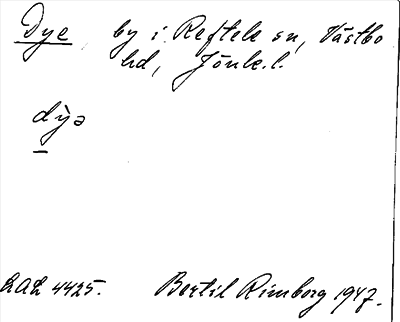 Dye by i Reftele sn, Västbo
hd, Jönk.l.
dỳə
LAL 4425. Bertil Rimborg 1947.